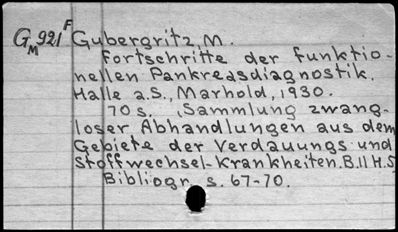 G M 921 F Gubergritz, M.
Fortschritte der funktio-
nellen Pankreasdiagnostik.
Halle a.S., Marhold, 1930.
70 s. (Sammlung zwang-
loser Abhandlungen aus dem
Gebiete der Verdauungs-und
Stoffwechsel-Krankheiten. B.11 H.5
Bibliogr. s. 67-70.